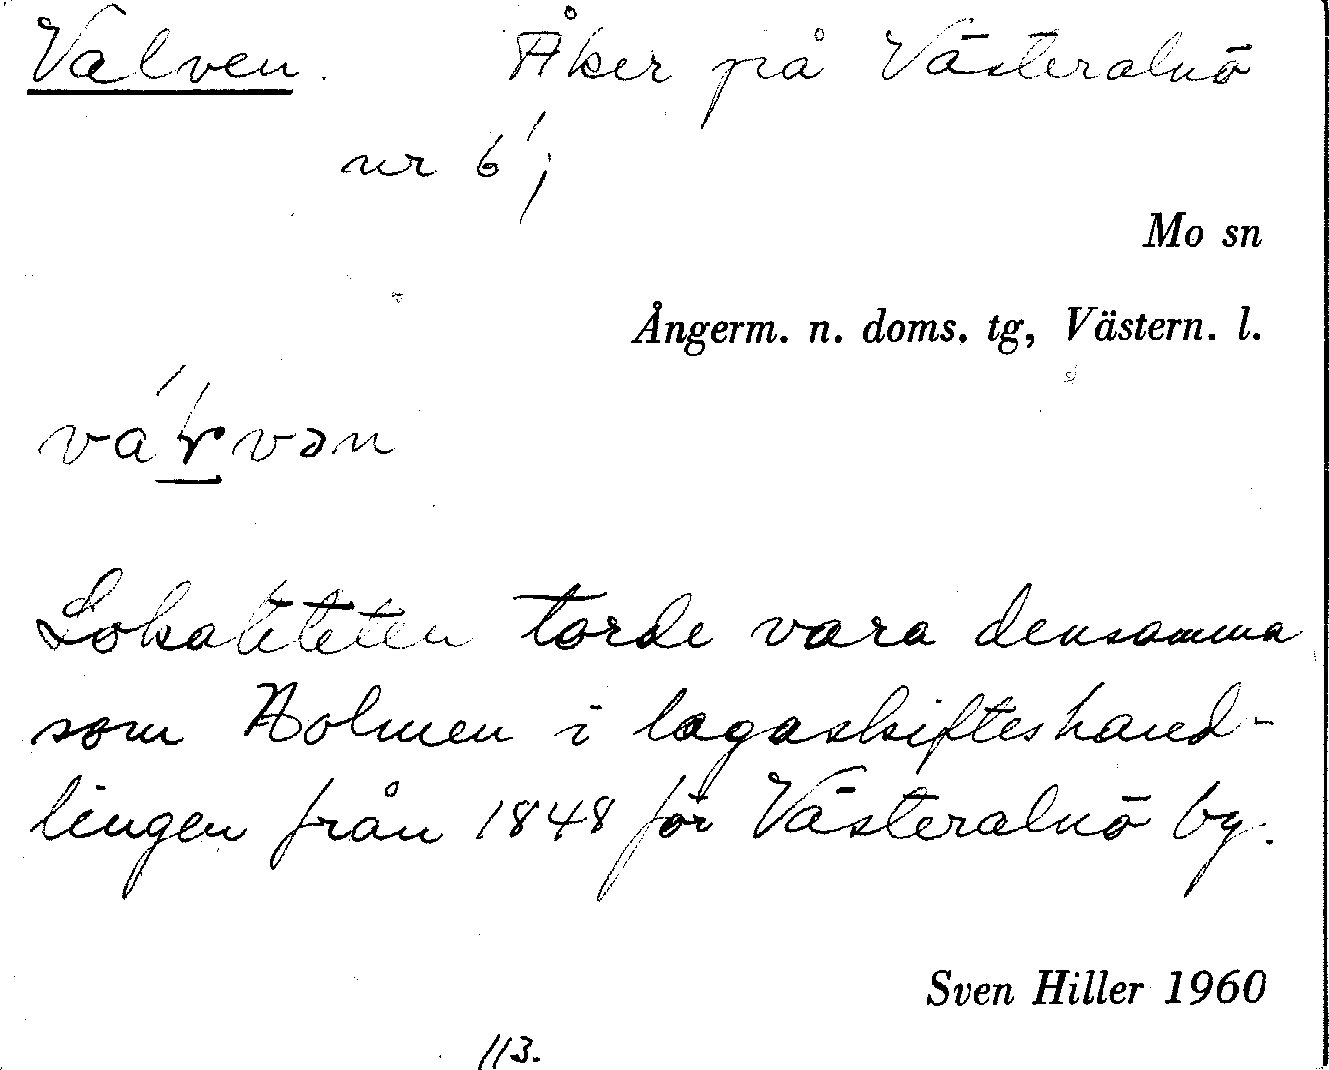 Valven. Åker på Västeralnö
nr 6¹;
Mo sn
Ångerm. n. doms. tg, Västern. l.
Lokaliteten torde vara densamma
som Holmen i lagaskifteshand-
lingen från 1848 för Västeralnö by.
Sven Hiller 1960
113.